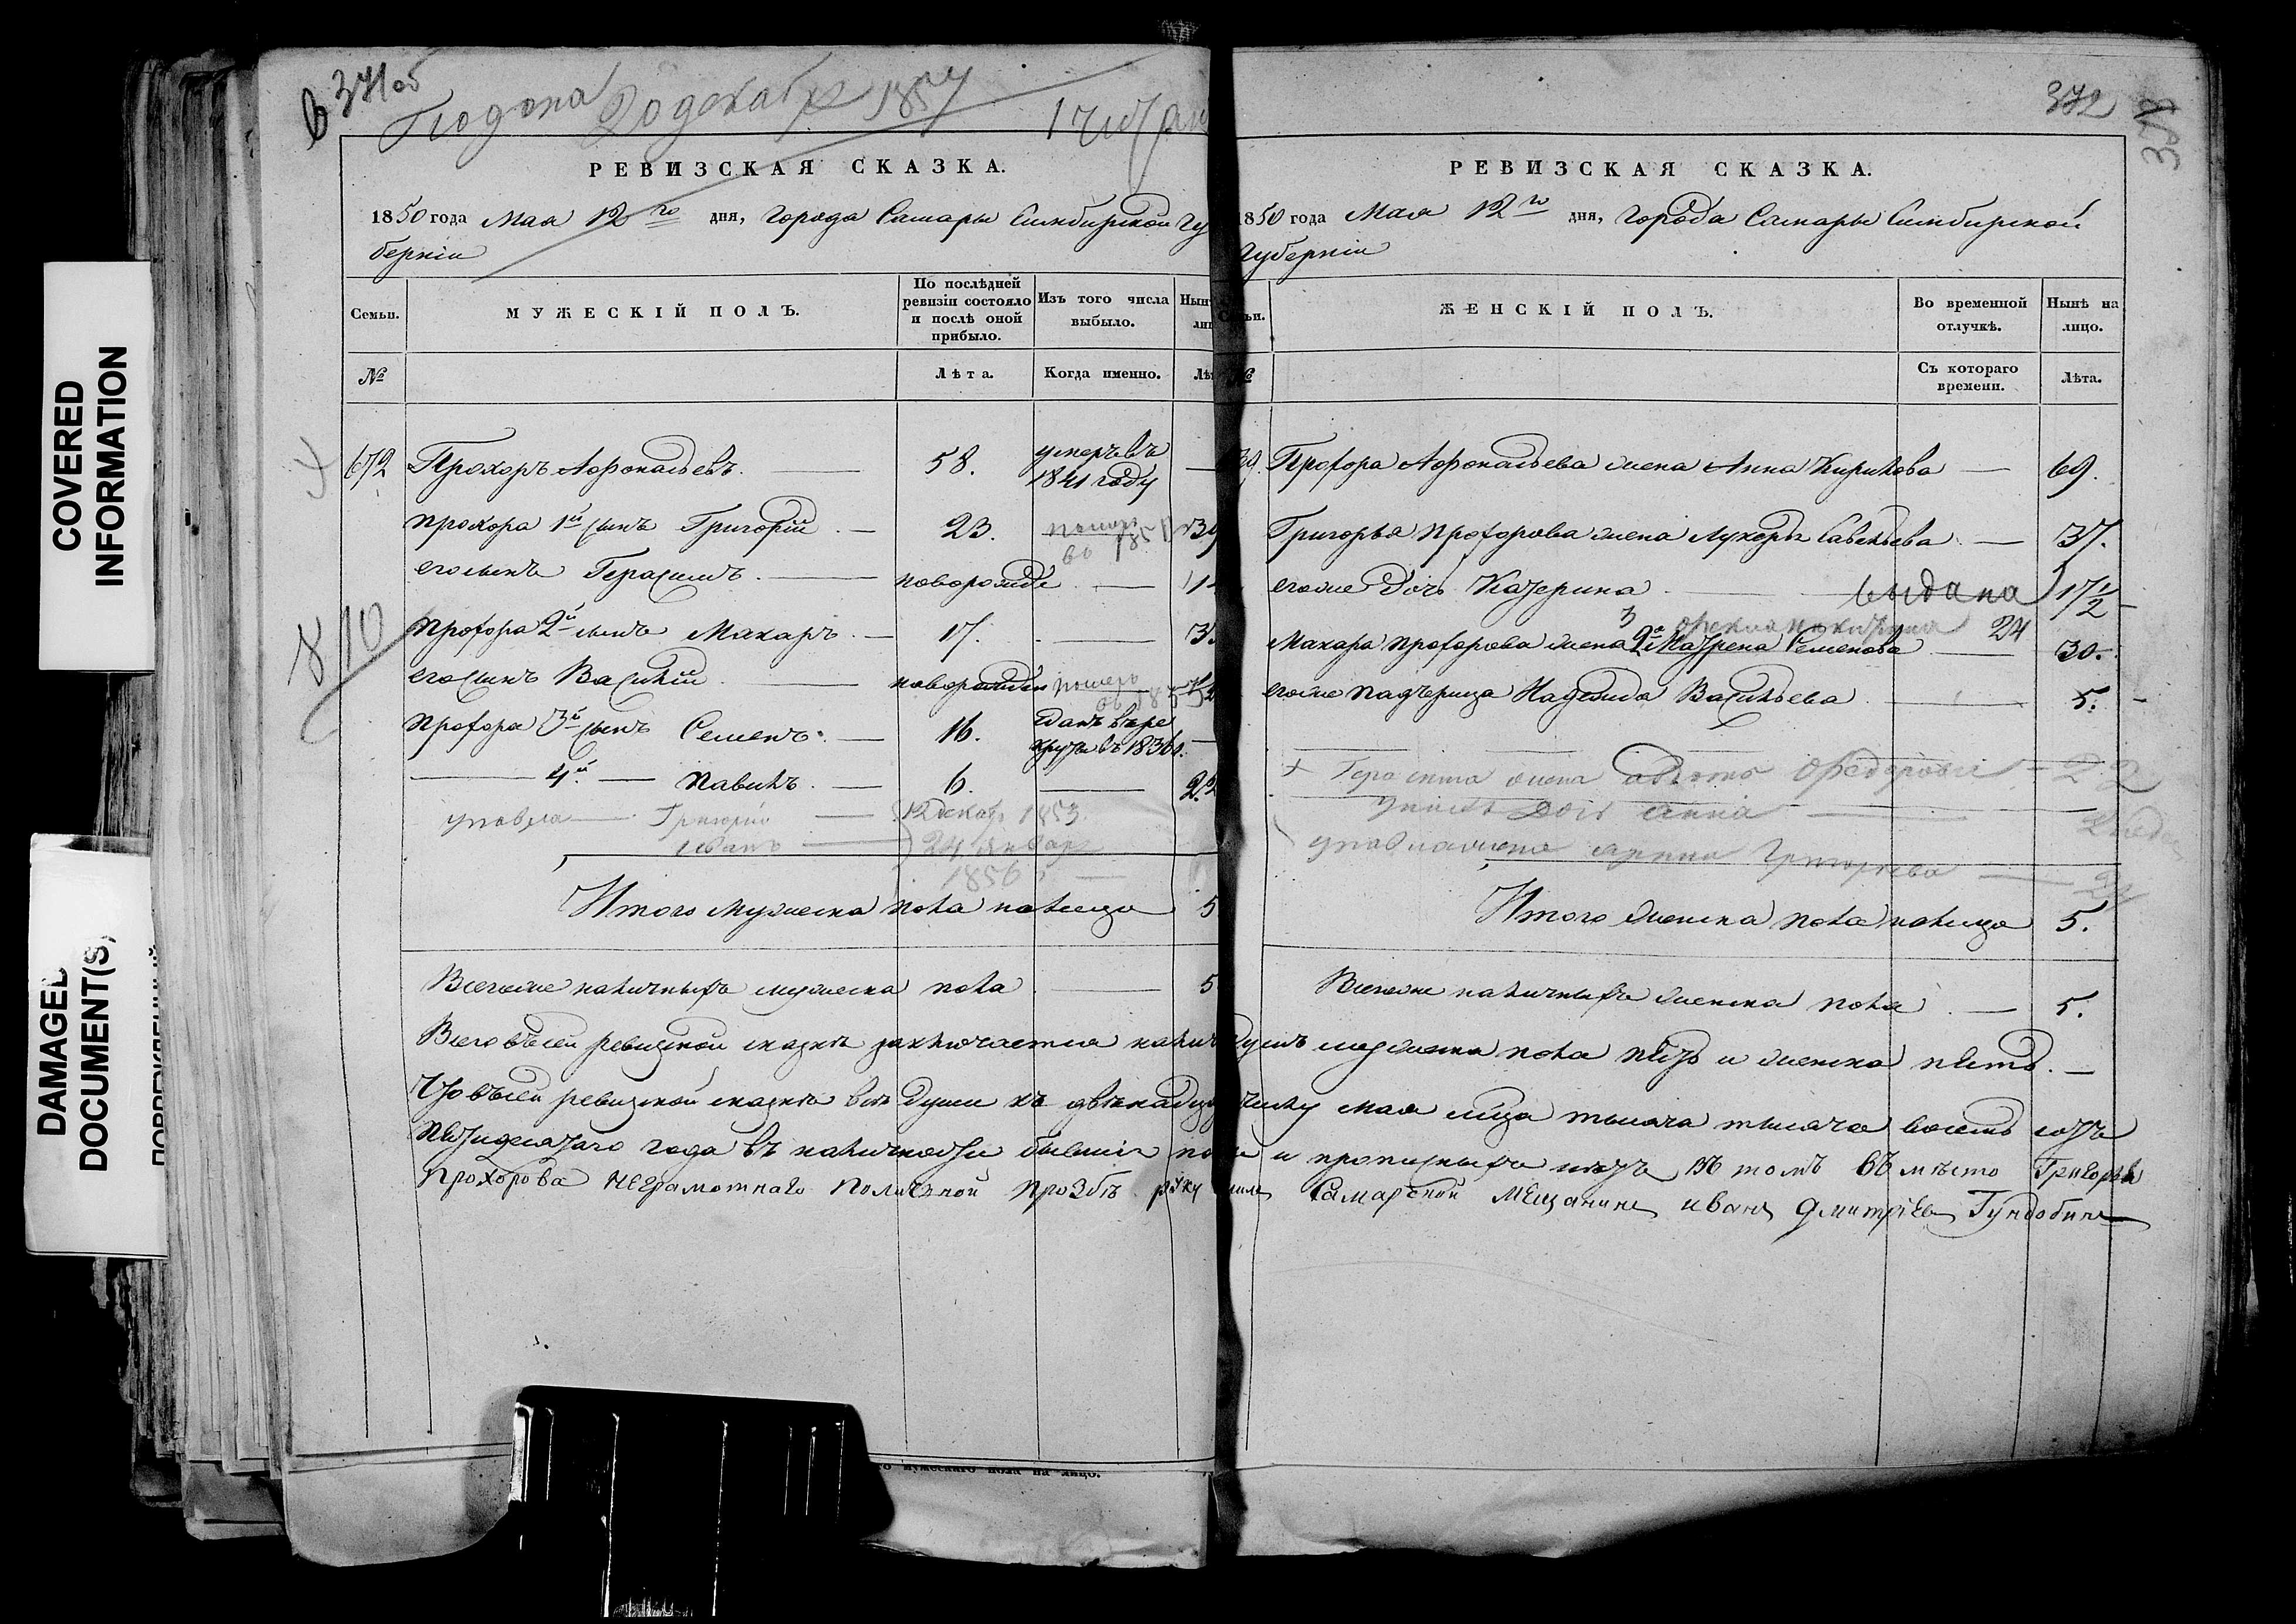 COVERED
INFORMATION
DAMAGED
DOCUMENT(S)
371об
Подана 20 декабр 1857
РЕВИЗСКАЯ СКАЗКА.
1850 года Мая 12го дня, Города Самары Симбирской Гу
берніи
Семьи. МУЖЕСКІЙ ПОЛЪ. По послѣдней ревизіи состояло и послѣ оной прибыло. Изъ того числа выбыло.
№ Лѣта. Когда именно.
672 Прохоръ Афонасьевъ. 58. умеръ въ 1841 году
Прохора 1й сынъ Григорій. 23. помер во
его сынъ Герасимъ. новорожде
Прохора 2й сынъ Макаръ. 17.
8/10
его сынъ Василій новорожден помер
Прохора 3й сынъ Семенъ. 16. Данъ въ рекруты въ 1836 г.
4й Павилъ. 6. 22
у павла Григорій 12 декабр 1853
Иванъ 24 январ 1856
Итого мужеска пола налицо 5
Всего же наличныхъ мужеска пола 5
372
РЕВИЗСКАЯ СКАЗКА.
1850 года Мая 12го дня, города Самары Симбирской
Губерніи
ЖЕНСКІЙ ПОЛЪ. Во временной отлучкѣ. Нынѣ на лицо.
№ Съ котораго времени. Лѣта.
Прохора Афонасьева жена Анна Кирилова 69.
Григорья Прохорова жена Лукерья Савельева 37.
его же дочь Катерина выдана 17 1/2
3 24
Макара Прохорова жена 2я Матрена Семенова 30.
его же падчерица Надежда Васильева 5.
+ Герасима жена Федорова 22
дочь Анна
у павла жена Григорьева
Итого женска пола налицо 5.
Всего же наличныхъ женска пола 5.
Всего въ сей ревизской сказкѣ заключается налич душъ мужеска пола пять и женска пять.
Что въ сей ревизской сказкѣ всѣ души къ двѣнадца числу мая мца тысяча тысяча восемь сотъ
пятидесятаго года въ наличности бывшія и прописныхъ нѣтъ въ томъ въ мѣсто Григорья
Прохорова неграмотнаго по личной прозбѣ руку Самарской Мещанинъ Иванъ Дмитріевъ Гундобинъ
го мужескаго пола на лицо.